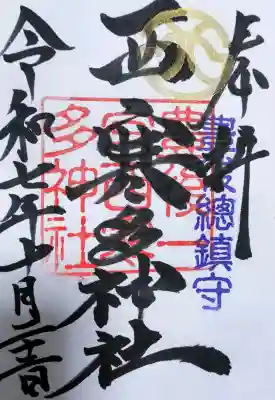 奉拝
豊後總鎮守
西寒多神社
豊後一宮西寒多神社
令和七年十月二十五日